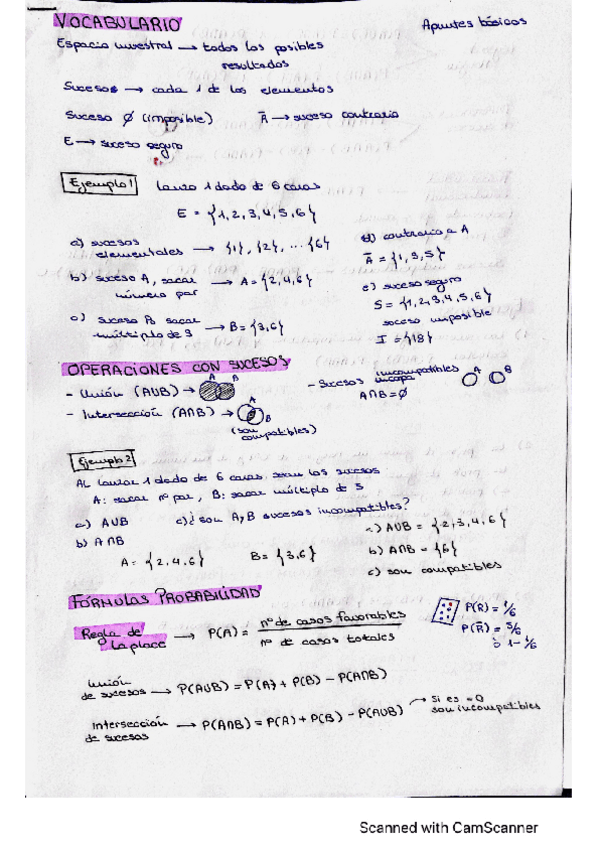 VOCABULARIO
Apuntes básicos
Espacio muestral → todos los posibles
resultados
Sucesos → cada 1 de los elementos
Suceso ∅ (imposible) Ā → suceso contrario
E → suceso seguro
Ejemplo 1 Lanzo 1 dado de 6 caras
E = {1,2,3,4,5,6}
a) sucesos
elementales → {1}, {2}, ... {6}
b) suceso A, sacar → A = {2,4,6}
número par
c) suceso B, sacar → B = {3,6}
múltiplo de 3
d) contrario a A
Ā = {1,3,5}
e) suceso seguro
S = {1,2,3,4,5,6}
suceso imposible
I = {18}
OPERACIONES CON SUCESOS
- Unión (AUB) → A B
- Intersección (A∩B) → A B
(son
compatibles)
- Sucesos incompatibles A B
A∩B = ∅
Ejemplo 2
AL lanzar 1 dado de 6 caras, sean los sucesos
A: sacar nº par, B: sacar múltiplo de 3
a) AUB c) ¿son A y B sucesos incompatibles?
b) A∩B
A = {2,4,6} B = {3,6}
a) AUB = {2,3,4,6}
b) A∩B = {6}
c) son compatibles
FÓRMULAS PROBABILIDAD
Regla de
Laplace → P(A) = nº de casos favorables
nº de casos totales
P(R) = 1/6
P(R̄) = 5/6
ò 1- 1/6
Unión
de sucesos → P(AUB) = P(A) + P(B) - P(A∩B)
Intersección
de sucesos → P(A∩B) = P(A) + P(B) - P(AUB) → Si es = 0
son incompatibles
Scanned with CamScanner